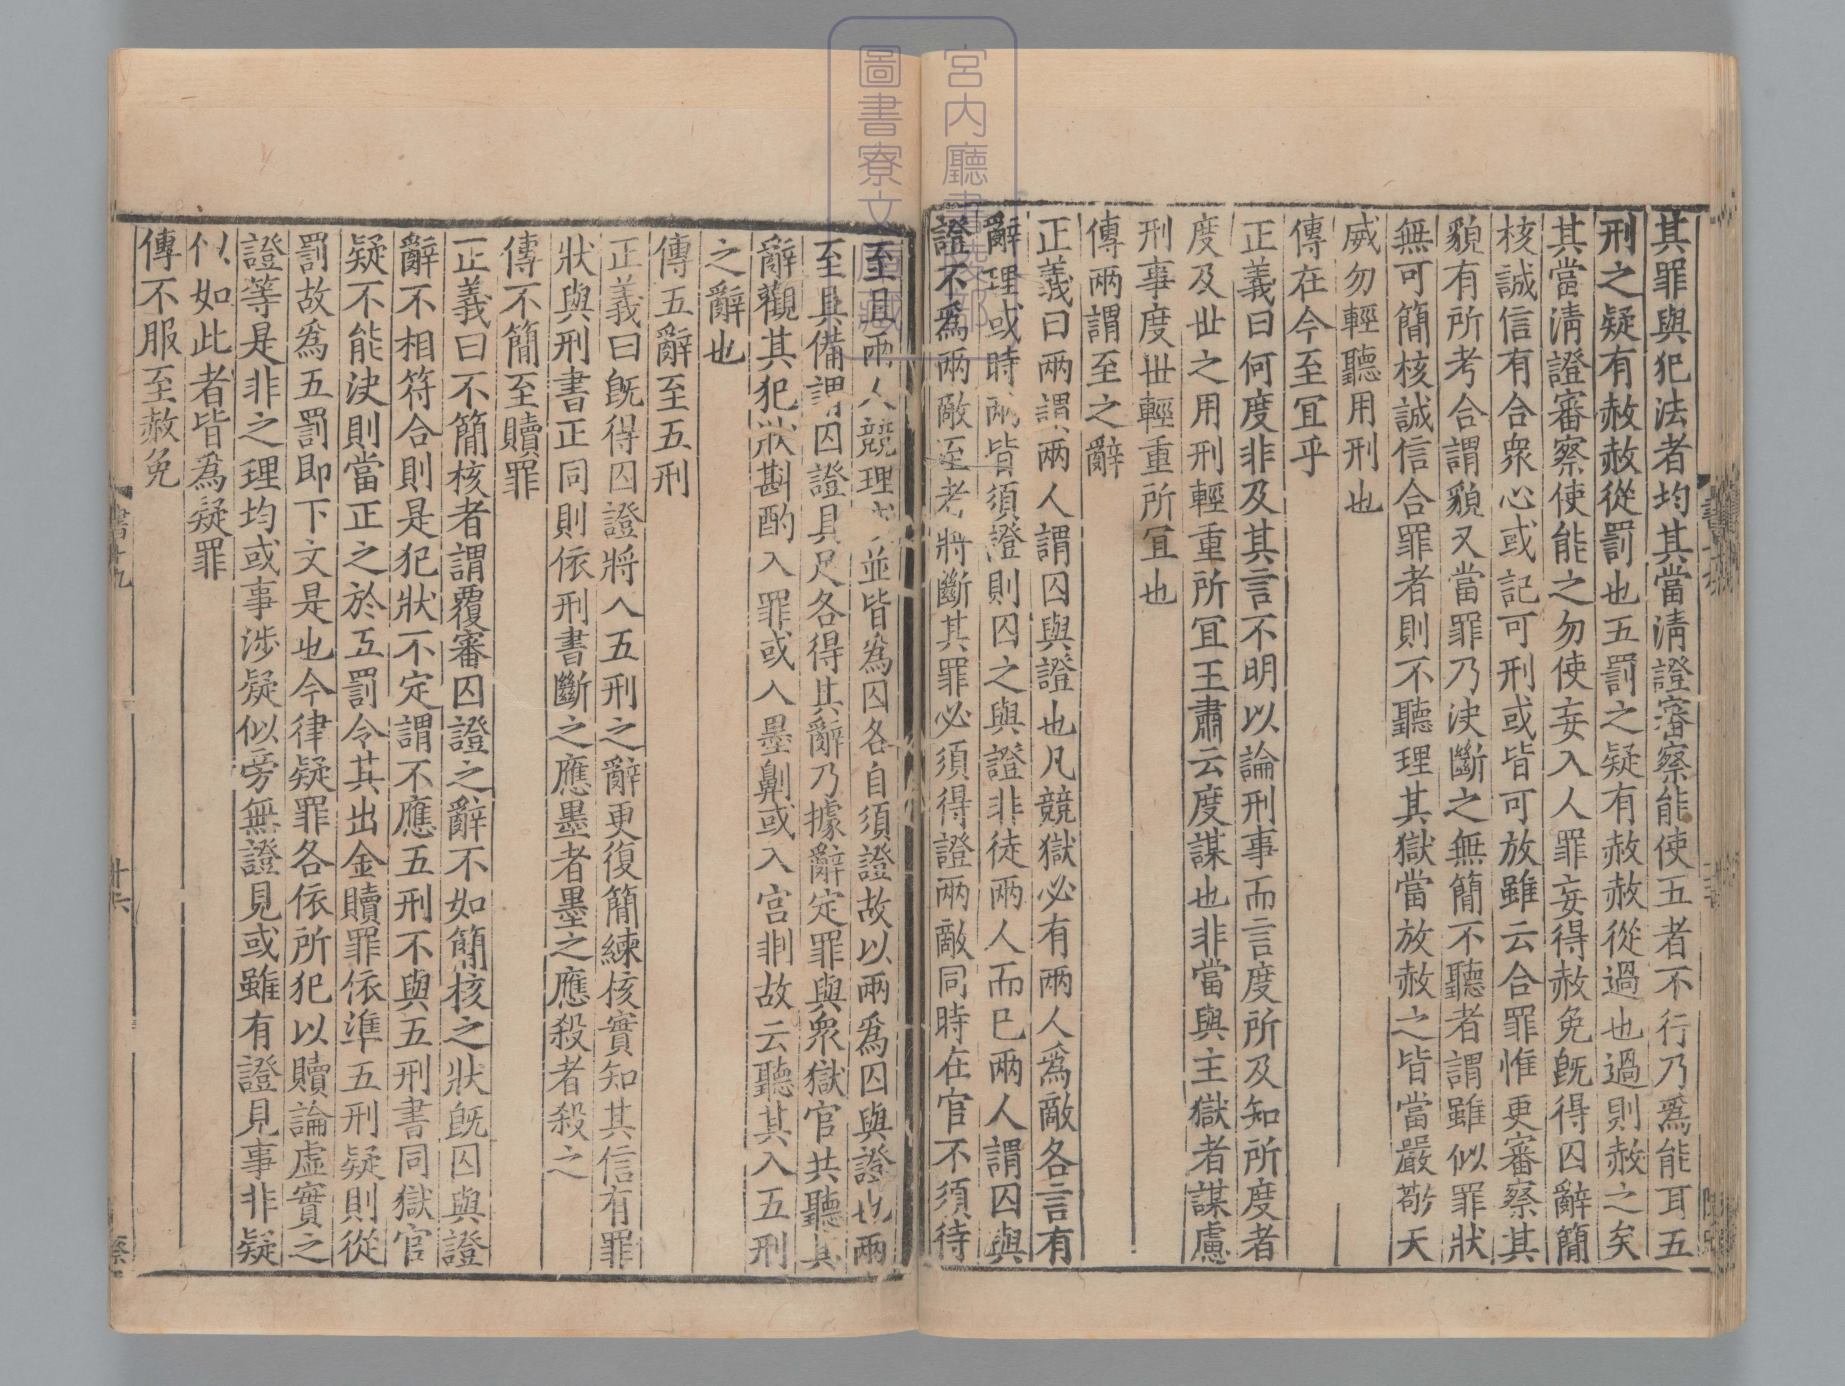 其罪與犯法者均其當清證審察能使五者不行乃爲能耳五
刑之疑有赦赦從罰也五罰之疑有赦赦從過也過則赦之矣
其當清證審察使能之勿使妄入人罪妄得赦免旣得囚辭簡
核誠信有合衆心或記可刑或皆可放雖云合罪惟更審察其
貌有所考合謂貌又當罪乃決斷之無簡不聽者謂雖似罪狀
無可簡核誠信合罪者則不聽理其獄當放赦之皆當嚴敬天
威勿輕聽用刑也
傳在今至冝乎
正義曰何度非及其言不明以論刑事而言度所及知所度者
度及丗之用刑輕重所冝王肅云度謀也非當與主獄者謀慮
刑事度丗輕重所冝也
傳兩謂至之辭
正義曰兩謂兩人謂囚與證也凡競獄必有兩人爲敵各言有
辭理或時兩皆須證則囚之與證非徒兩人而已兩人謂囚與
證不爲兩敵至者將斷其罪必須得證兩敵同時在官不須待
至且兩人競理或並皆爲囚各自須證故以兩爲囚與證也兩
至具備謂囚證具足各得其辭乃據辭定罪與衆獄官共聽其
辭觀其犯狀斟酌入罪或入墨劓或入宮剕故云聽其入五刑
之辭也
傳五辭至五刑
正義曰旣得囚證將入五刑之辭更復簡練核實知其信有罪
狀與刑書正同則依刑書斷之應墨者墨之應殺者殺之
傳不簡至贖罪
正義曰不簡核者謂覆審囚證之辭不如簡核之狀旣囚與證
辭不相符合則是犯狀不定謂不應五刑不與五刑書同獄官
疑不能決則當正之於五罰令其出金贖罪依準五刑疑則從
罰故爲五罰即下文是也今律疑罪各依所犯以贖論虛實之
證等是非之理均或事涉疑似旁無證見或雖有證見事非疑
似如此者皆爲疑罪
傳不服至赦免
書十九
廿六
宮内廳書陵部
圖書寮文庫藏